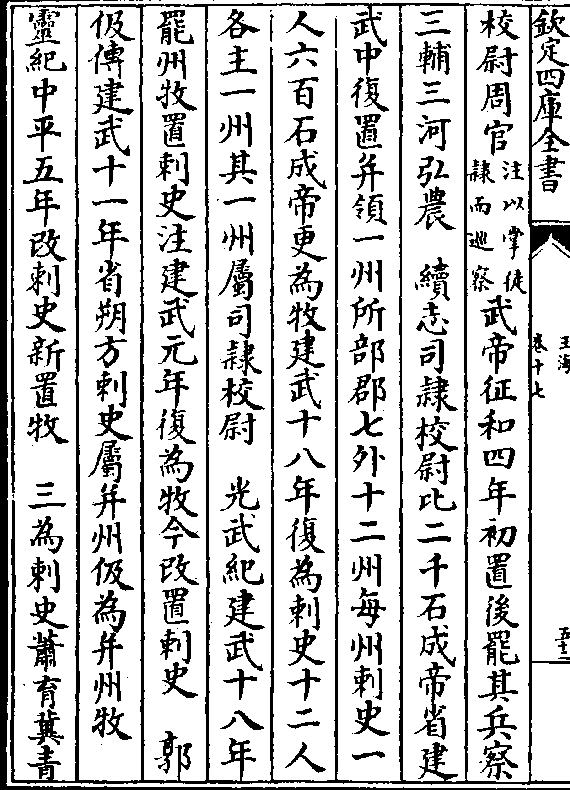 欽定四庫全書
玉海
卷十七
五十二
校尉周官注以掌徒隸而巡察武帝征和四年初置後罷其兵察
三輔三河弘農 續志司隸校尉比二千石成帝省建
武中復置并領一州所部郡七外十二州每州刺史一
人六百石成帝更為牧建武十八年復為刺史十二人
各主一州其一州屬司隸校尉 光武紀建武十八年
罷州牧置刺史注建武元年復為牧今改置刺史 郭
伋傳建武十一年省朔方刺史屬并州伋為并州牧
靈紀中平五年改刺史新置牧 三為刺史蕭育冀青